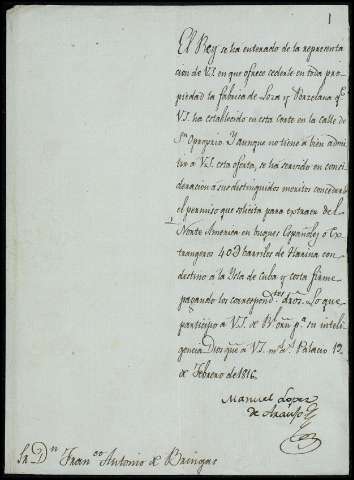 1
El Rey se ha enterado de la representa
cion de V.I. en que ofrece cederle en toda pro
piedad la fabrica de Loza y Porzelana qe.
V.I. ha establecido en esta corte en la calle de
Sn. Opropio. Y aunque no tiene a bien admi
tir a V.I. esta oferta, se ha servido en consi
deracion a sus distinguidos meritos concederle
el permiso que solicita para extraer del
Norte America en buques Españoles o Ex
trangeros 40D barriles de Harina con
destino a la Ysla de Cuba y costa firme
pagando los correspondtes. dros. Lo que
participo a V.I. de Rl. orñ pa. su inteli
gencia. Dios gue. a V.I. ms. as. Palacio 12
de Febrero de 1816.
Manuel Lopez
de Araujo
Sr. Dn. Franco. Antonio de Bringas